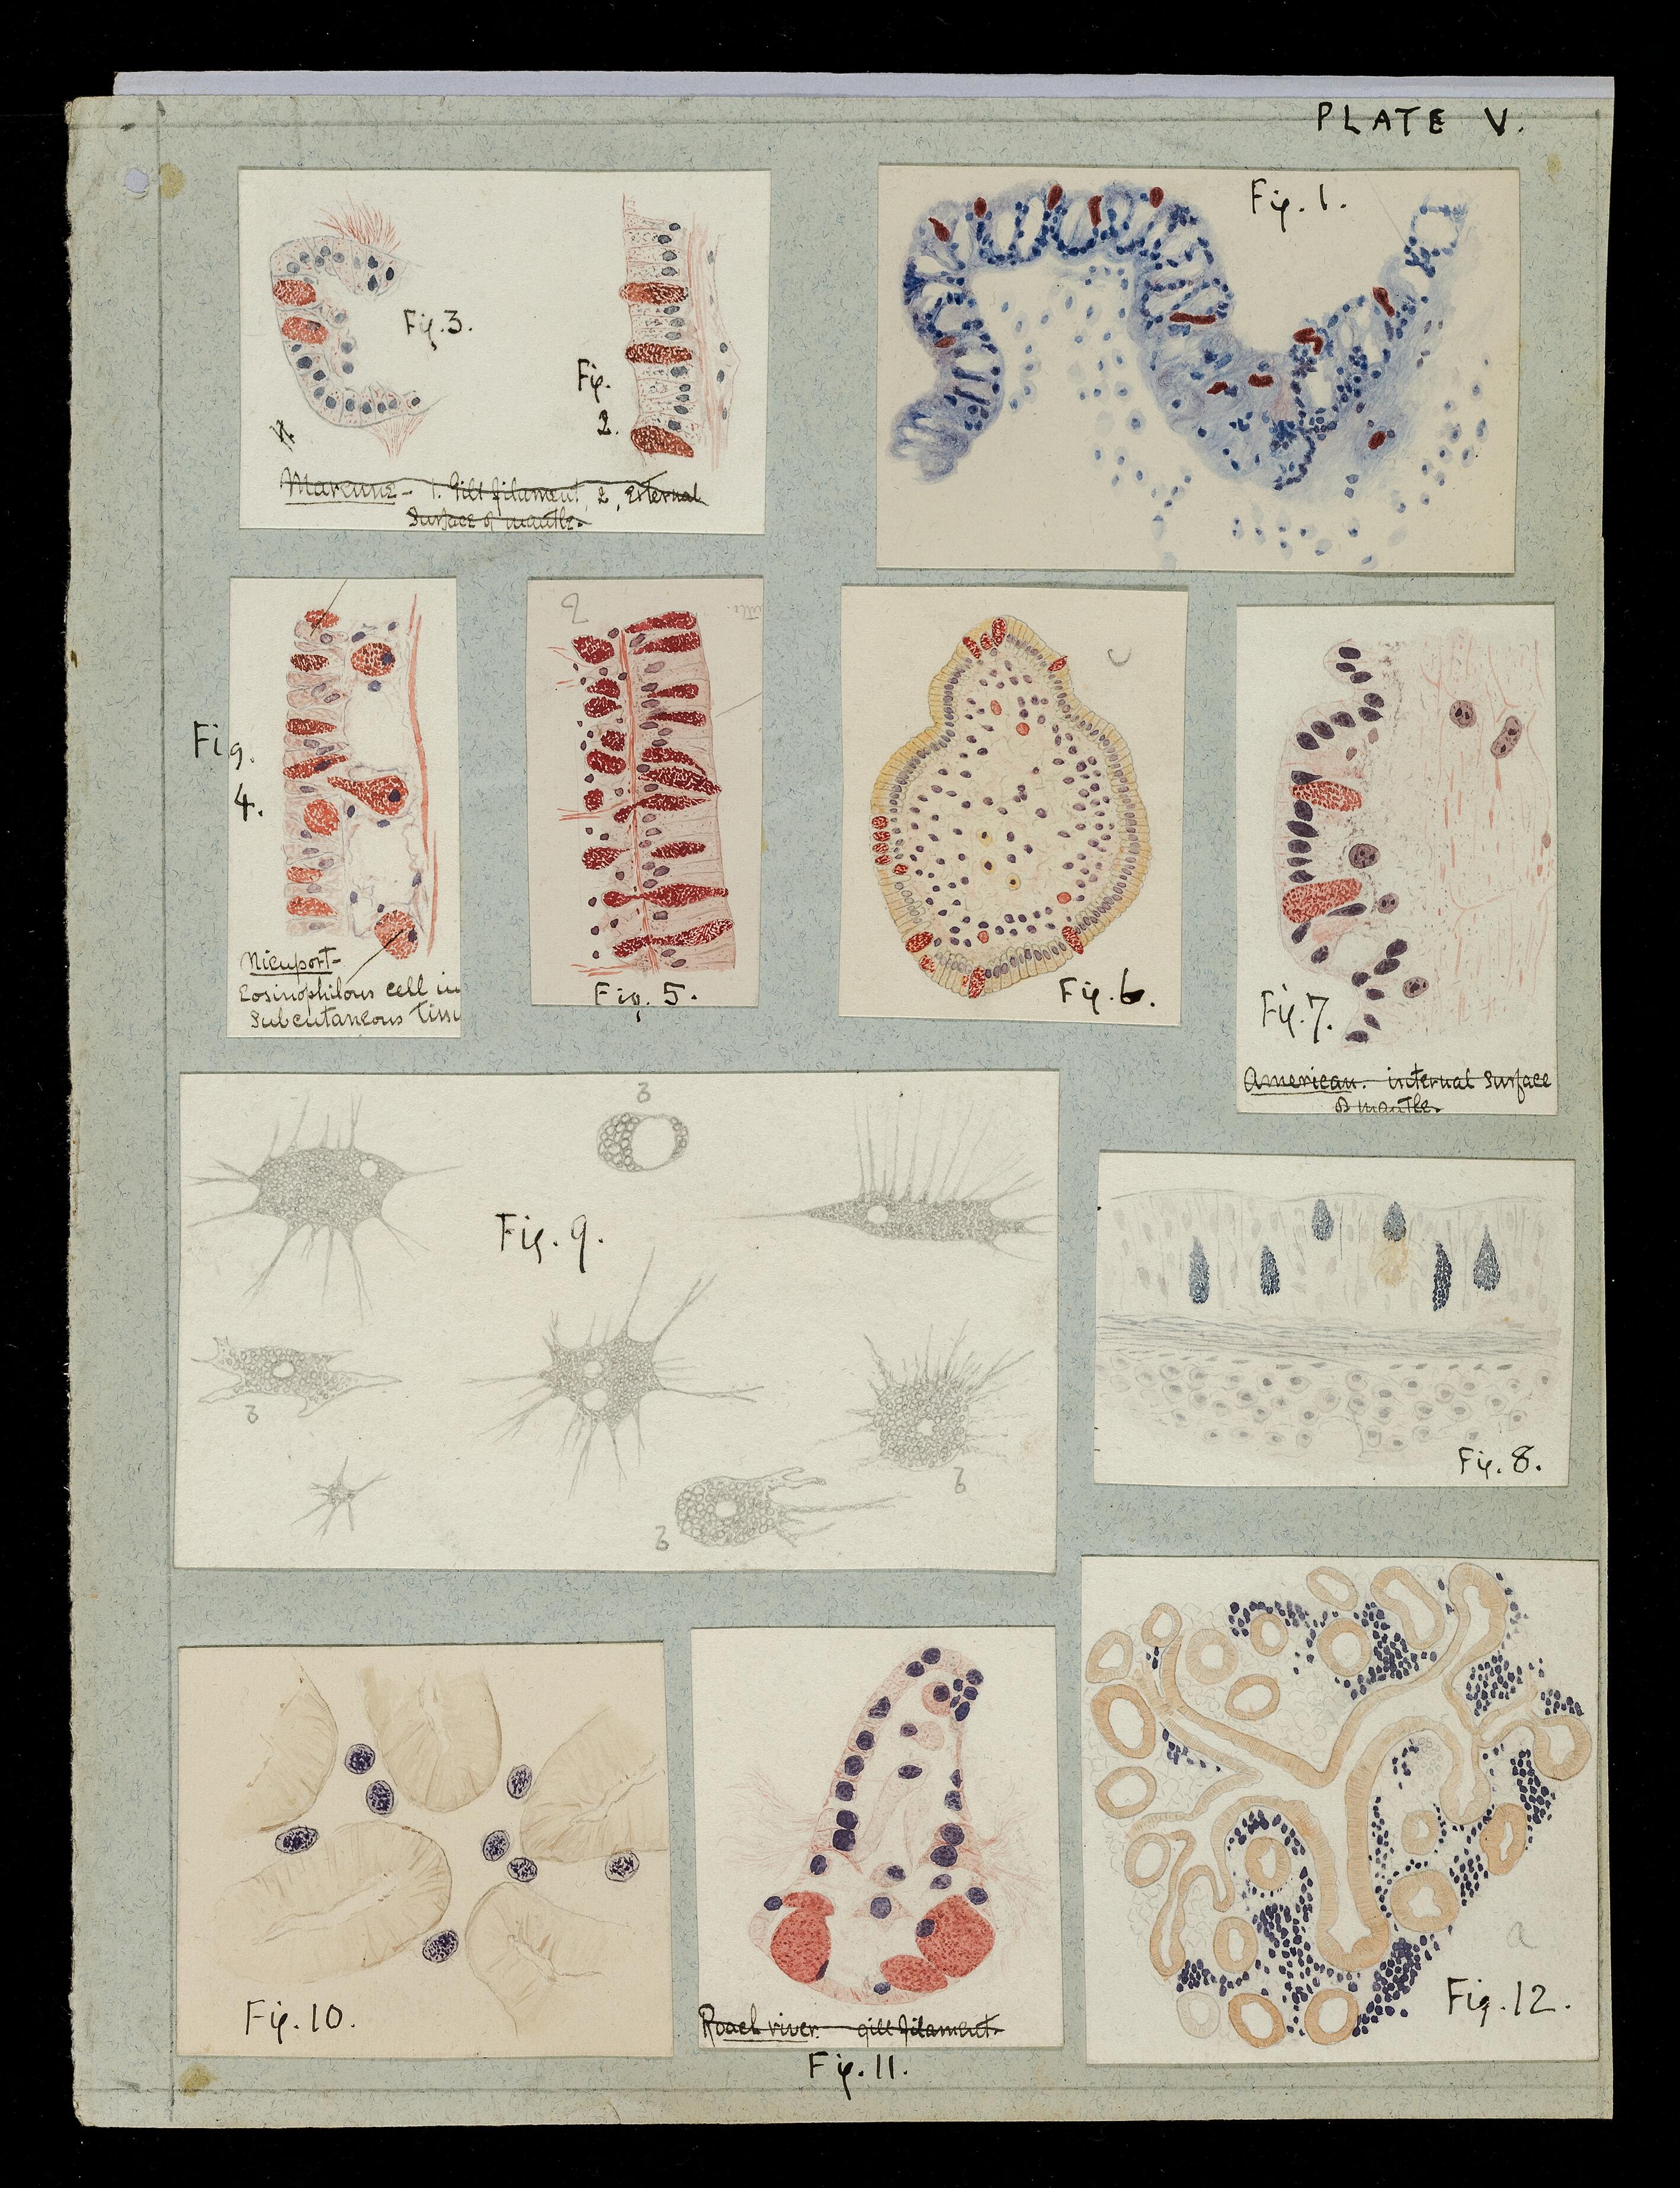 PLATE V.
Fig. 1.
Fig. 3.
Fig.
2.
Marenne - 1. Gill filament, 2, External
Surface of mantle.
Fig.
4.
Nieuport -
Eosinophilous cell in
Subcutaneous
Fig. 5.
Fig. 6.
Fig. 7.
American. internal surface
of mantle.
3
Fig. 9.
3
3
3
Fig. 8.
Fig. 10.
Roach river - gill filament.
Fig. 11.
a
Fig. 12.